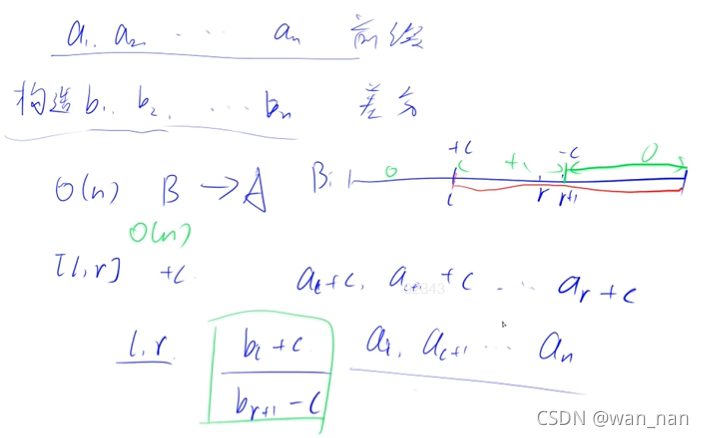 a₁, a₂, ... aₙ 前缀
构造 b₁, b₂, ... bₙ 差分
+c -c
O(n) B → A B: 0 +c 0
l r r+1
O(n)
[l,r] +c aₗ+c, aₗ₊₁+c ... aᵣ+c
l,r bₗ+c aₗ, aₗ₊₁ ... aₙ
bᵣ₊₁-c
CSDN @wan_nan